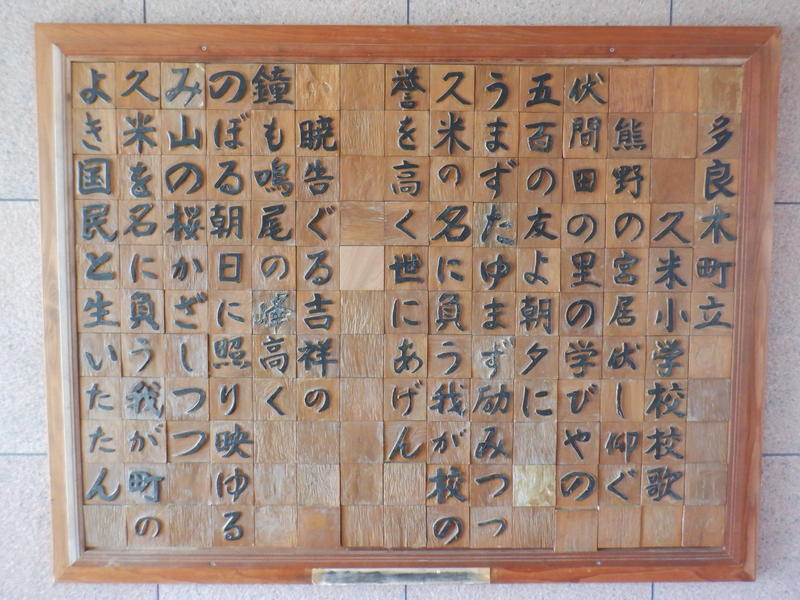 多良木町立
久米小学校校歌
熊野の宮居伏し仰ぐ
伏間田の里の学びやの
五百の友よ朝夕に
うまずたゆまず励みつつ
久米の名に負う我が校の
誉を高く世にあげん
暁告ぐる吉祥の
鐘も鳴尾の峰高く
のぼる朝日に照り映ゆる
み山の桜かざしつつ
久米を名に負う我が町の
よき国民と生いたたん